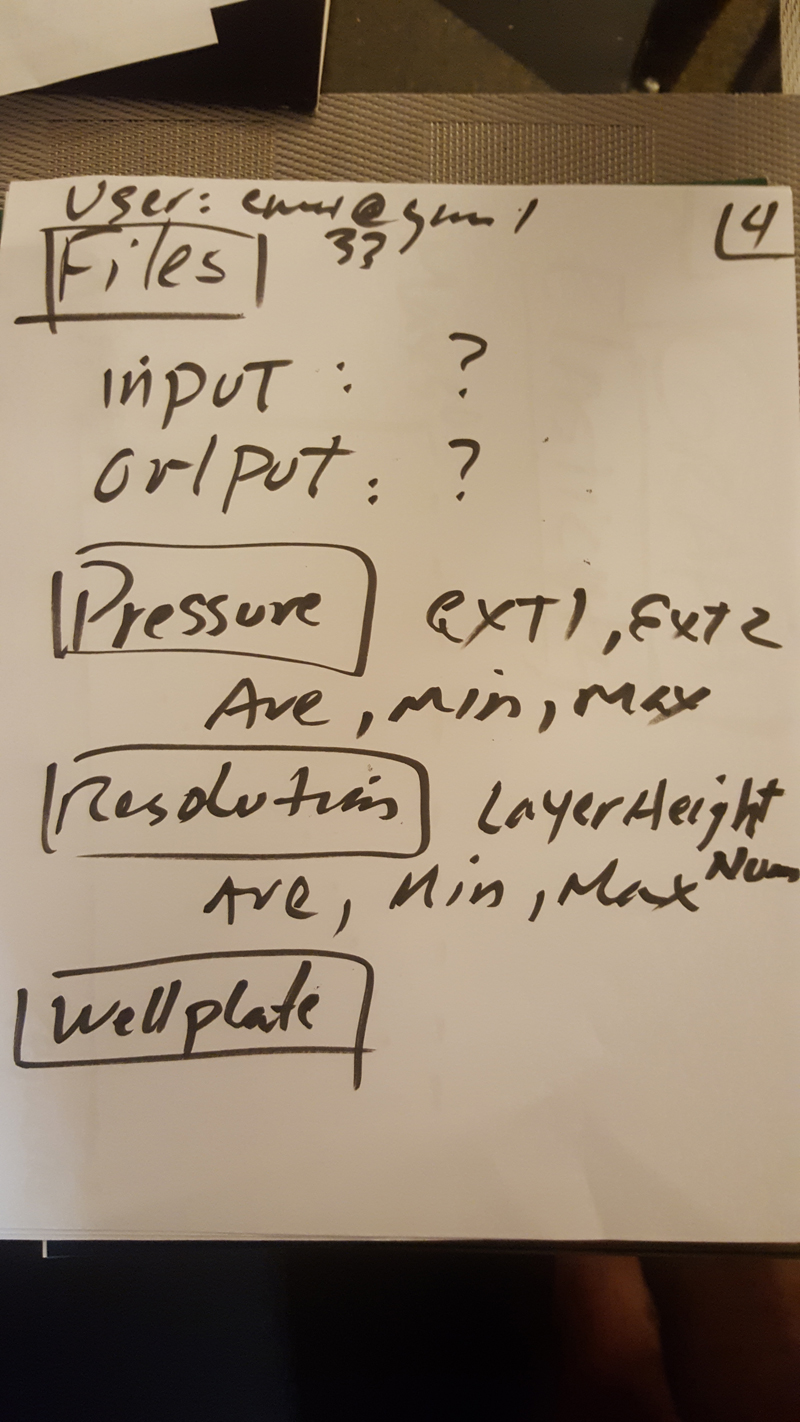 User: 
4
Files
33
input : ?
output : ?
Pressure ext1, Ext2
Ave, Min, Max
Resolution LayerHeight
Ave, Min, Max Num
Wellplate